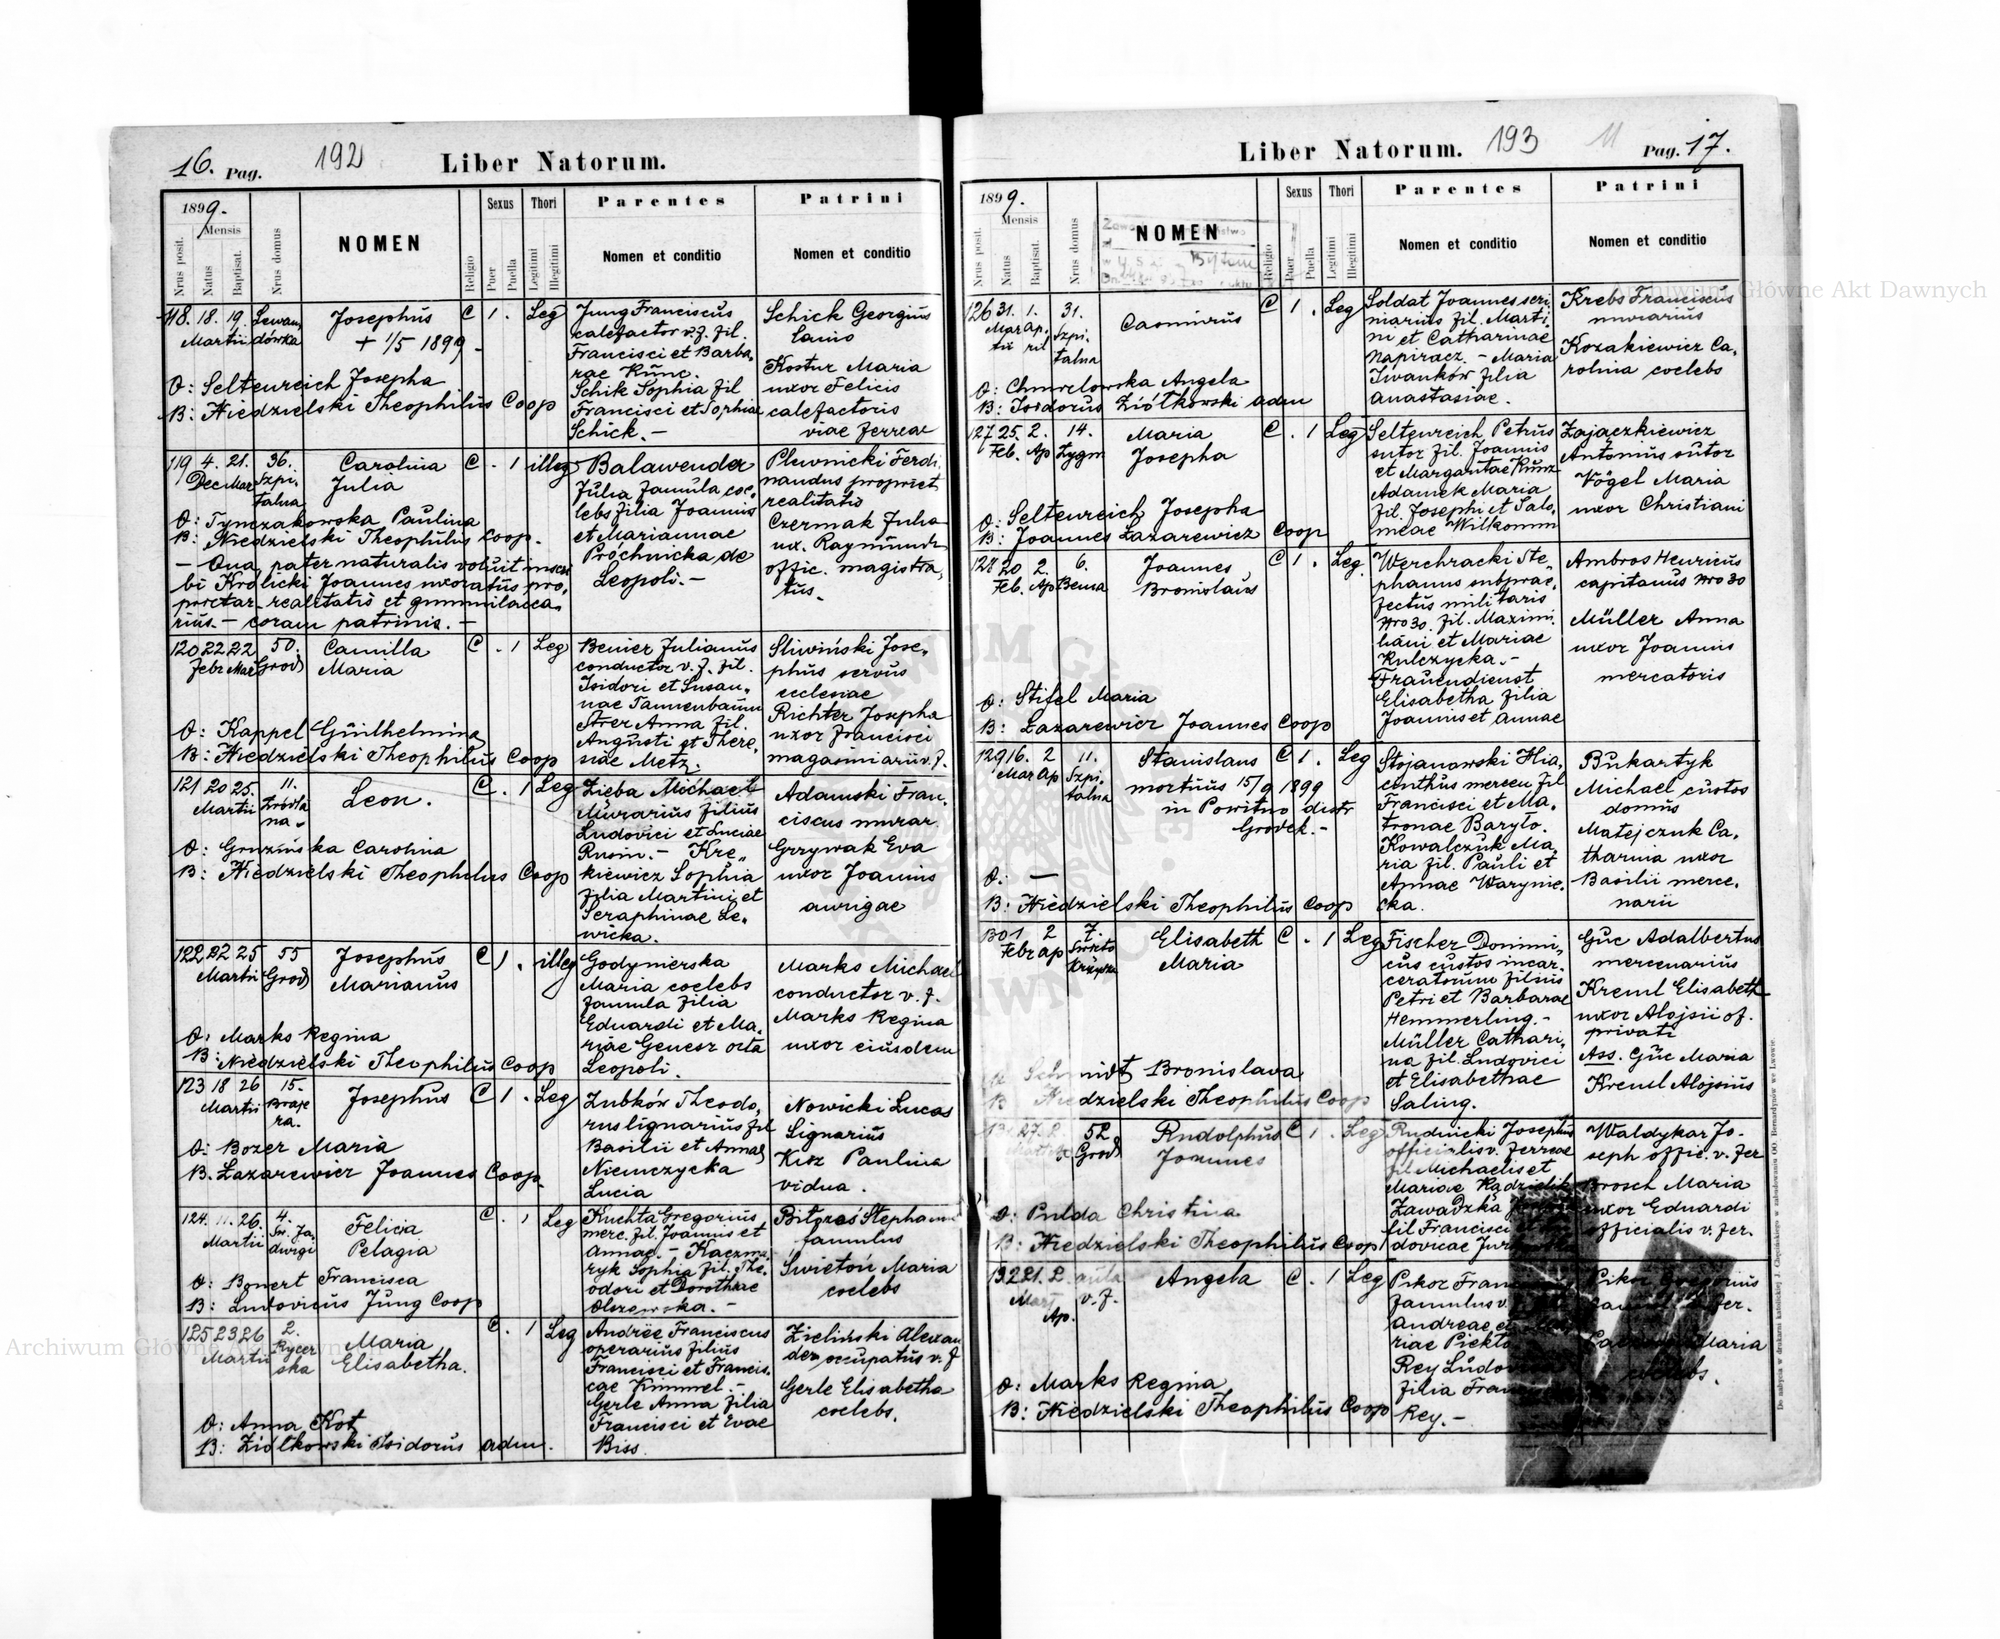 16. Pag. 192 Liber Natorum.
1899. Mensis
Nrus posit. Natus Baptisat. Nrus domus NOMEN Religio Sexus Puer Puella Thori Legitimi Illegitimi Parentes Nomen et conditio Patrini Nomen et conditio
118. 18. 19. Martii Lewandówka
Josephus
+ 1/5 1899
C 1 . Leg
Jung Franciscus
calefactor v. f. fil.
Francisci et Barba,
rae Künc.
Schik Sophia fil
Francisci et Sophiae
Schick. –
Schick Georgius
lanio
Kostur Maria
uxor Felicis
calefactoris
viae ferreae
O: Seltenreich Josepha
B: Niedzielski Theophilus Coop
119 4. 21. 36.
Dec Mar Szpi,
talna
Carolina
Julia
C . 1 illeg
Balawender
Julia famula coe,
lebs filia Joannis
et Mariannae
Próchnicka de
Leopoli. –
Plewnicki Ferdi,
nandus propriet
realitatis
Czermak Julia
ux. Raymundi
offic. magistra,
tus.
O: Tynczakowska Paulina
B: Niedzielski Theophilus Coop.
– Qua pater naturalis voluit inscri
bi Krolicki Joannes uxoratus pro,
prietar. realitatis et gummilacca,
rius. – coram patrinis. –
120 22 22 50.
Febr Mar Grod
Camilla
Maria
C . 1 Leg
Benier Julianus
conductor v. f. fil.
Isidori et Susan,
nae Tannenbaum
Strer Anna fil.
Augusti et There,
siae Metz.
Sliwiński Jose,
phus servus
ecclesiae
Richter Josepha
uxor Francisci
magasiniarii v. f.
O: Kappel Guilhelmina
B: Niedzielski Theophilus Coop
121 20 25. 11.
Martii Źródla
na.
Leon.
C . 1 Leg
Zieba Michael
Murarius filius
Ludovici et Luciae
Rusin. – Kre,
kiewicz Sophia
filia Martini et
Seraphinae Le,
wicka.
Adamski Fran,
ciscus murar.
Grzywak Eva
uxor Joannis
aurigae
O: Gruzińska Carolina
B: Niedzielski Theophilus Coop
122 22 25 55
Martii Grod
Josephus
Marianus
C 1 . illeg
Godynierska
Maria coelebs
famula filia
Eduardi et Ma,
riae Genesr orta
Leopoli.
Marks Michael
conductor v. f.
Marks Regina
uxor eiusdem
O: Marks Regina
B: Niedzielski Theophilus Coop
123 18 26 15.
Martii Braje
ra.
Josephus
C 1 . Leg
Zubków Theodo,
rus lignarius fil
Basilii et Annae
Niemczycka
Lucia
Nowicki Lucas
Lignarius
Kisz Paulina
vidua.
O: Bozer Maria
B. Lazarewicz Joannes Coop.
124. 11. 26. 4.
Martii Św. Ja,
dwigi
Felicia
Pelagia
C . 1 Leg
Kuchta Gregorius
merc. fil. Joannis et
Annae. – Kaczma,
ryk Sophia fil. The,
odori et Dorotheae
Olszowska. –
Bitgoś Stephanus
famulus
Świetoń Maria
coelebs
O: Bonert Francisca
B: Ludovicus Jung Coop
125 23 26 2.
Martii Rycer
ska
Maria
Elisabetha.
C . 1 Leg
Andrée Franciscus
operarius filius
Francisci et Francis,
cae Kimmel. –
Gerle Anna filia
Francisci et Evae
Biss.
Zieliński Alexan
der occupatus v. f
Gerle Elisabetha
coelebs.
O: Anna Kot
B: Ziólkowski Isidorus adm.
Liber Natorum. 193 11 Pag. 17.
1899. Mensis
Nrus posit. Natus Baptisat. Nrus domus NOMEN Religio Sexus Puer Puella Thori Legitimi Illegitimi Parentes Nomen et conditio Patrini Nomen et conditio
126 31. 1. 31.
Mar Ap. Szpi,
tii ril talna
Casimirus
C 1 . Leg
Soldat Joannes scri
niarius fil. Marti,
ni et Catharinae
Napiracz. – Maria
Iwanków filia
Anastasiae.
Krebs Franciscus
murarius
Kozakiewicz Ca,
rolina coelebs
O: Chmielowska Angela
B: Isidorus Ziółkowski adm
127 25. 2. 14.
Feb. Ap Zygm
Maria
Josepha
C . 1 Leg
Seltenreich Petrus
sutor fil. Joannis
et Margaritae Kunz
Adamek Maria
fil. Josephi et Salo,
meae Wilkomm
Zajaczkiewicz
Antonius sutor
Vögel Maria
uxor Christiani
O: Seltenreich Josepha
B: Joannes Lazarewicz Coop
128 20 2. 6.
Feb. Ap Bema
Joannes
Bronislaus
C 1 . Leg
Werchracki Ste,
phanus subprae,
fectus militaris
Nro 30. fil. Maximi,
liani et Mariae
Kulczycka. –
Frauendienst
Elisabetha filia
Joannis et Annae
Ambros Henricus
capitanus Nro 30
Müller Anna
uxor Joannis
mercatoris
O: Stifel Maria
B: Lazarewicz Joannes Coop
129 16. 2 11.
Mar Ap Szpi,
talna
Stanislaus
mortuus 15/9 1899
in Powitno distr
Grodek. –
C 1 . Leg
Stojanowski Hia,
cinthus mercen fil
Francisci et Ma,
tronae Baryło.
Kowalczuk Ma,
ria fil. Pauli et
Annae Warynic,
cka.
Bukartyk
Michael custos
domus
Matejczuk Ca,
tharina uxor
Basilii merce,
narii
O: –
B: Niedzielski Theophilus Coop
130 1 2 7.
Febr Ap Swieto
Krzyska
Elisabeth
Maria
C . 1 Leg
Fischer Domini,
cus custos incar,
ceratorum filius
Petri et Barbarae
Hemmerling. –
Müller Cathari,
na fil. Ludovici
et Elisabethae
Saling.
Guc Adalbertus
mercenarius
Kreml Elisabeth
uxor Alojsii of.
privati
Ass. Guc Maria
Kreml Alojsius
Schmidt Bronislava
B Niedzielski Theophilus Coop
131 27. 2. 52
Grod
Rudolphus
Joannes
C 1 . Leg
Rudnicki Josephus
officialis v. ferreae
fil Michaelis et
Mariae Kądzielik
Zawadzka
fil Francisci et
dovicae
Waldykar Jo,
seph offic. v. fer
Brosch Maria
uxor Eduardi
officialis v. fer.
O: Pulda Christina
B: Niedzielski Theophilus Coop
132 21. 2. aula
Mart v. f.
Ap.
Angela
C . 1 Leg
Pikor
famulus v.
Andreae et
riae
Rey
filia
Rey. –
Pikor Gregorius
fer.
Maria
coelebs.
O: Marks Regina
B: Niedzielski Theophilus Coop
Do nabycia w drukarni katolickiej J. Chęcińskiego w zabudowaniu OO. Bernardynów we Lwowie.
Archiwum Główne Akt Dawnych
Archiwum Główne Akt Dawnych